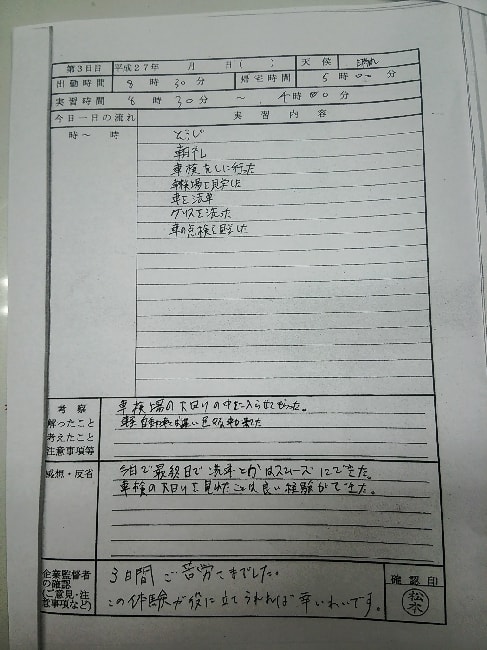 第3日目 平成27年 月 日( ) 天候 晴れ
出勤時間 8時30分 帰宅時間 5時00分
実習時間 8時30分 ~ 4時00分
今日一日の流れ 実習内容
時~ 時 そうじ
朝礼
車検をしに行った
車検場を見学した
車を洗車
グリスを洗った
車の点検を見学した
考察
解ったこと
考えたこと
注意事項等
車検場の
感想・反省
今日で最終日で洗車とかはスムーズにできた。
車検の大回りを見れたことは良い経験ができた。
企業監督者
の確認
(ご意見・注
意事項など)
3日間ご苦労さまでした。
この体験が役に立てられれば幸いです。
確認印
松本